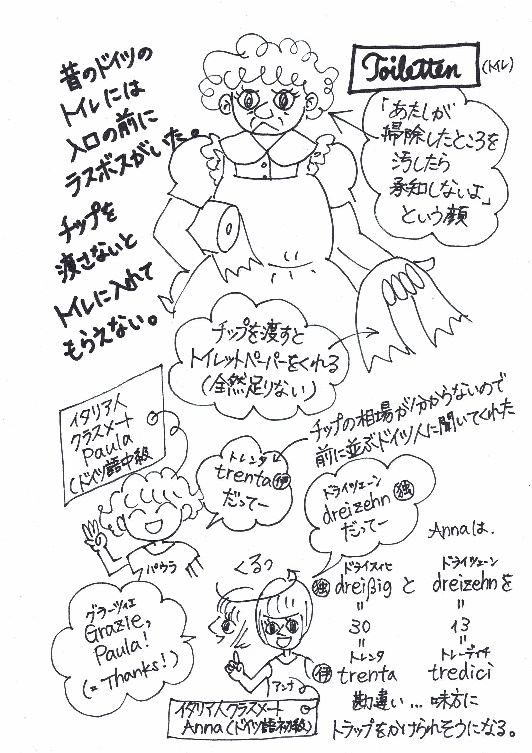 昔のドイツの
トイレには
入口の前に
ラスボスがいた。
チップを
渡さないと
トイレに入れて
もらえない。
Toiletten
(トイレ)
「あたしが
掃除したところを
汚したら
承知しないよ」
という顔
チップを渡すと
トイレットペーパーをくれる
(全然足りない)
イタリア人
クラスメート
Paula
(ドイツ語中級
チップの相場が分からないので
前に並ぶドイツ人に聞いてくれた
トレンタ
trenta 伊
だってー
パウラ
ドライツェーン
dreizehn 独
だってー
グラーツィエ
Grazie,
Paula!
(= Thanks!)
くるっ
アンナ
イタリア人クラスメート
Anna(ドイツ語初級)
Annaは、
ドライスィヒ ドライツェーン
独 dreißig と dreizehnを
= =
30 13
= =
トレンタ トレーディチ
伊 trenta tredici
勘違い… 味方に
トラップをかけられそうになる。